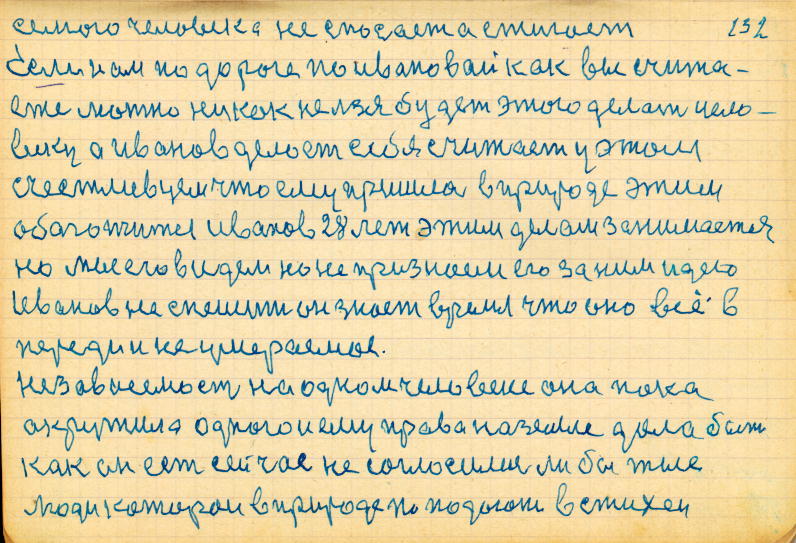 самого человека не спасает а стигает 132
Если нам по дороге по ивановай как вы счита-
ете можно никак нелзя будет этого делат чело-
веку а Иванов делает себя считает у этом
счестливцем что ему пришлос в природе этим
Иванов 28 лет этим делам занимается
но мы его видем но не признаем его за ним идею
Иванов не спешит он знает время что оно всё в
переди и не умераемое.
независемост на одном человеке она пока
акружила одного и ему права на земле дала быт
как он ест сейчас не согласилис ли бы тые
люди каторои в природе по подают в стихеи